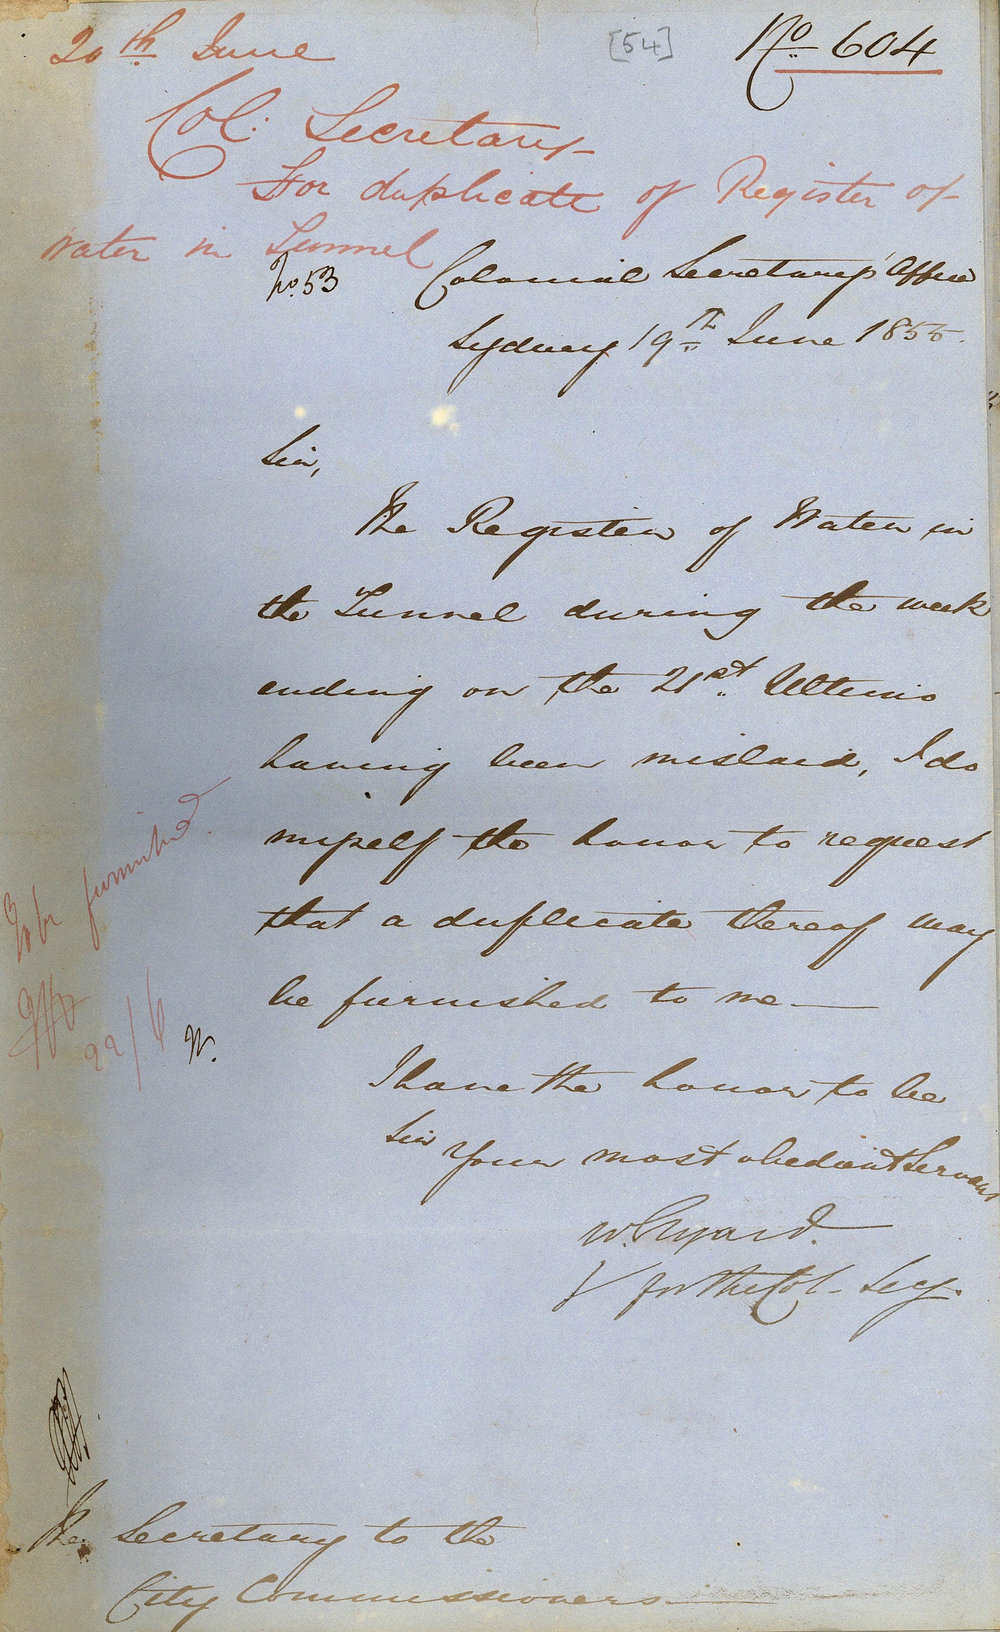 20th June
[54]
No 604
Col: Secretary
For duplicate of Register of
Water in Tunnel
No. 53
Colonial Secretary's Office
Sydney 19th June 1855.
Sir,
The Register of Water in
the Tunnel during the week
ending on the 21st. Ultimo
having been mislaid, I do
myself the honor to request
that a duplicate thereof may
be furnished to me —
To be furnished.
22/6
I have the honor to be
Sir
Your most obedient Servant
W.
for the Col. Secy.
The Secretary to the
City Commissioners —